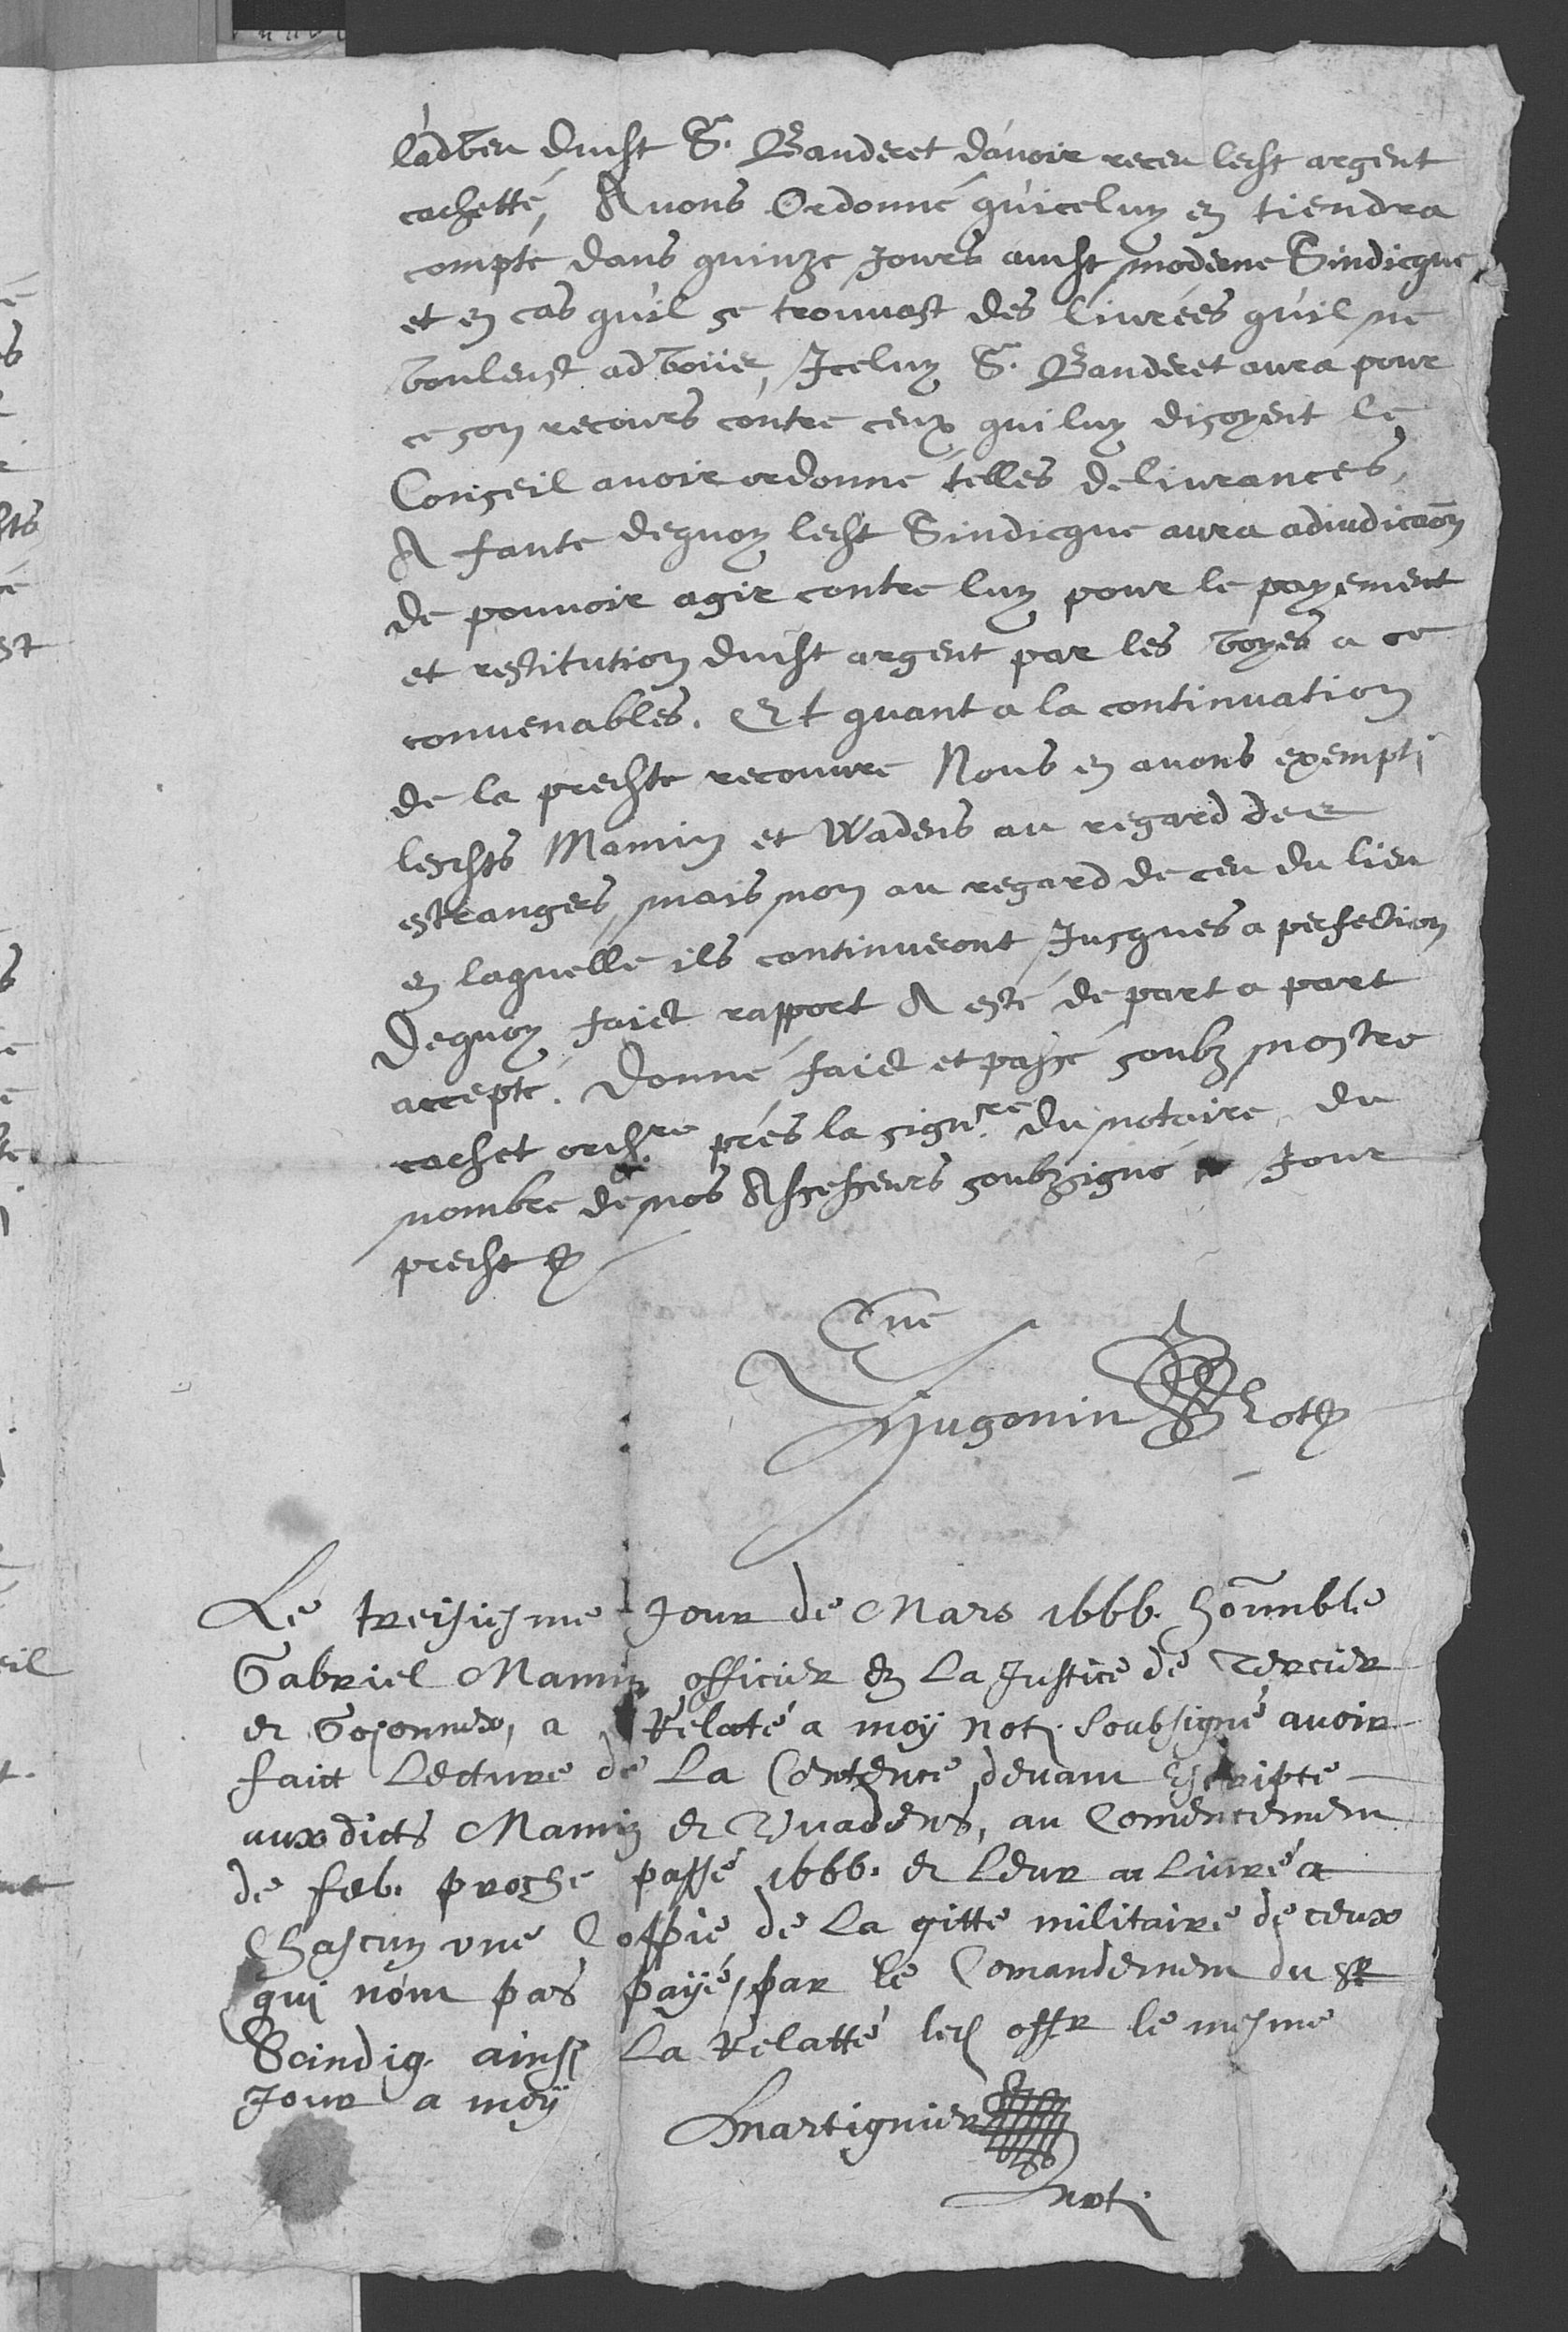 l'adveu dudt Sr. Banderet d'avoir receu ledt argent
cachetté, Avons Ordonné qu'iceluy en tiendra
compte dans quinze Jours audt moderne Sindicque
et en cas qu'il se trouvast des livrées qu'il ne
voulenst advoüer, Iceluy Sr. Banderet aura pour
ce son recours contre ceux qui luy disoyent le
Conseil avoir ordonné telles delivrances,
A faute dequoy ledt Sindicque aura adiudicaon
de pouvoir agir contre luy pour le payement
et restitution dudt argent par les voyes a ce
convenables. Et quant a la continuation
de la predte recouvre Nous en avons exempti
lesdts Mamin et Wadens au regard des
estrangers, mais non au regard de ceu du lieu
en laquelle ils continueront Jusques a perfection
Dequoy faict rapport A esté de part a part
accepté. Donné faict et passé soubz nostre
cachet ordre prés la signre du notaire du
nombre de nos Assesseurs soubzsigné Jour
predt
Hugonin
Le treisiesme Jour de Mars 1666. honnble
Gabriel Mamin officier en La Justice de Tercier
et Gojonnex, a Relaté a moÿ not. Soubsigné avoir
faict Lecture de La Centence devant Escripte
aux dicts Mamin et Wuadens, au Comencement
de feb. proche passé 1666. et Leur a Livré a
Chascun une Coppie de La gitte militaire de ceux
qui nónt pas payé, par le Comandement du Sr
Scindiq. ainsi La Relatté led offr le mesme
Jour a moÿ
Martignier
not.